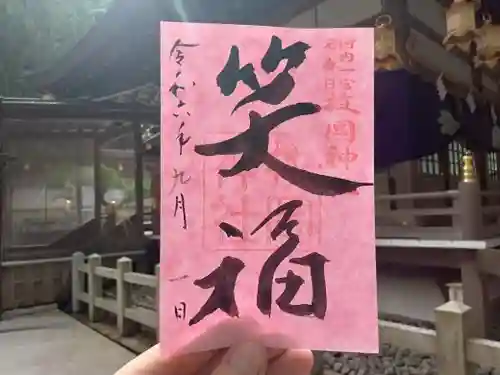 河内一之宮
元春日
枚岡神社
笑福
令和六年九月一日